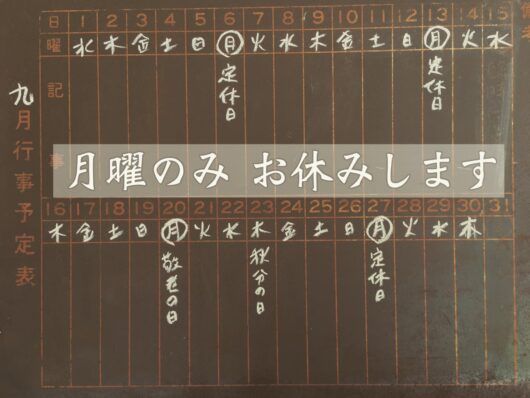 九月行事予定表
日 1 2 3 4 5 6 7 8 9 10 11 12 13 14 15
曜 水 木 金 土 日 月 火 水 木 金 土 日 月 火 水
記事
定休日
定休日
月曜のみ お休みします
16 17 18 19 20 21 22 23 24 25 26 27 28 29 30 31
木 金 土 日 月 火 水 木 金 土 日 月 火 水 木
敬老の日
秋分の日
定休日